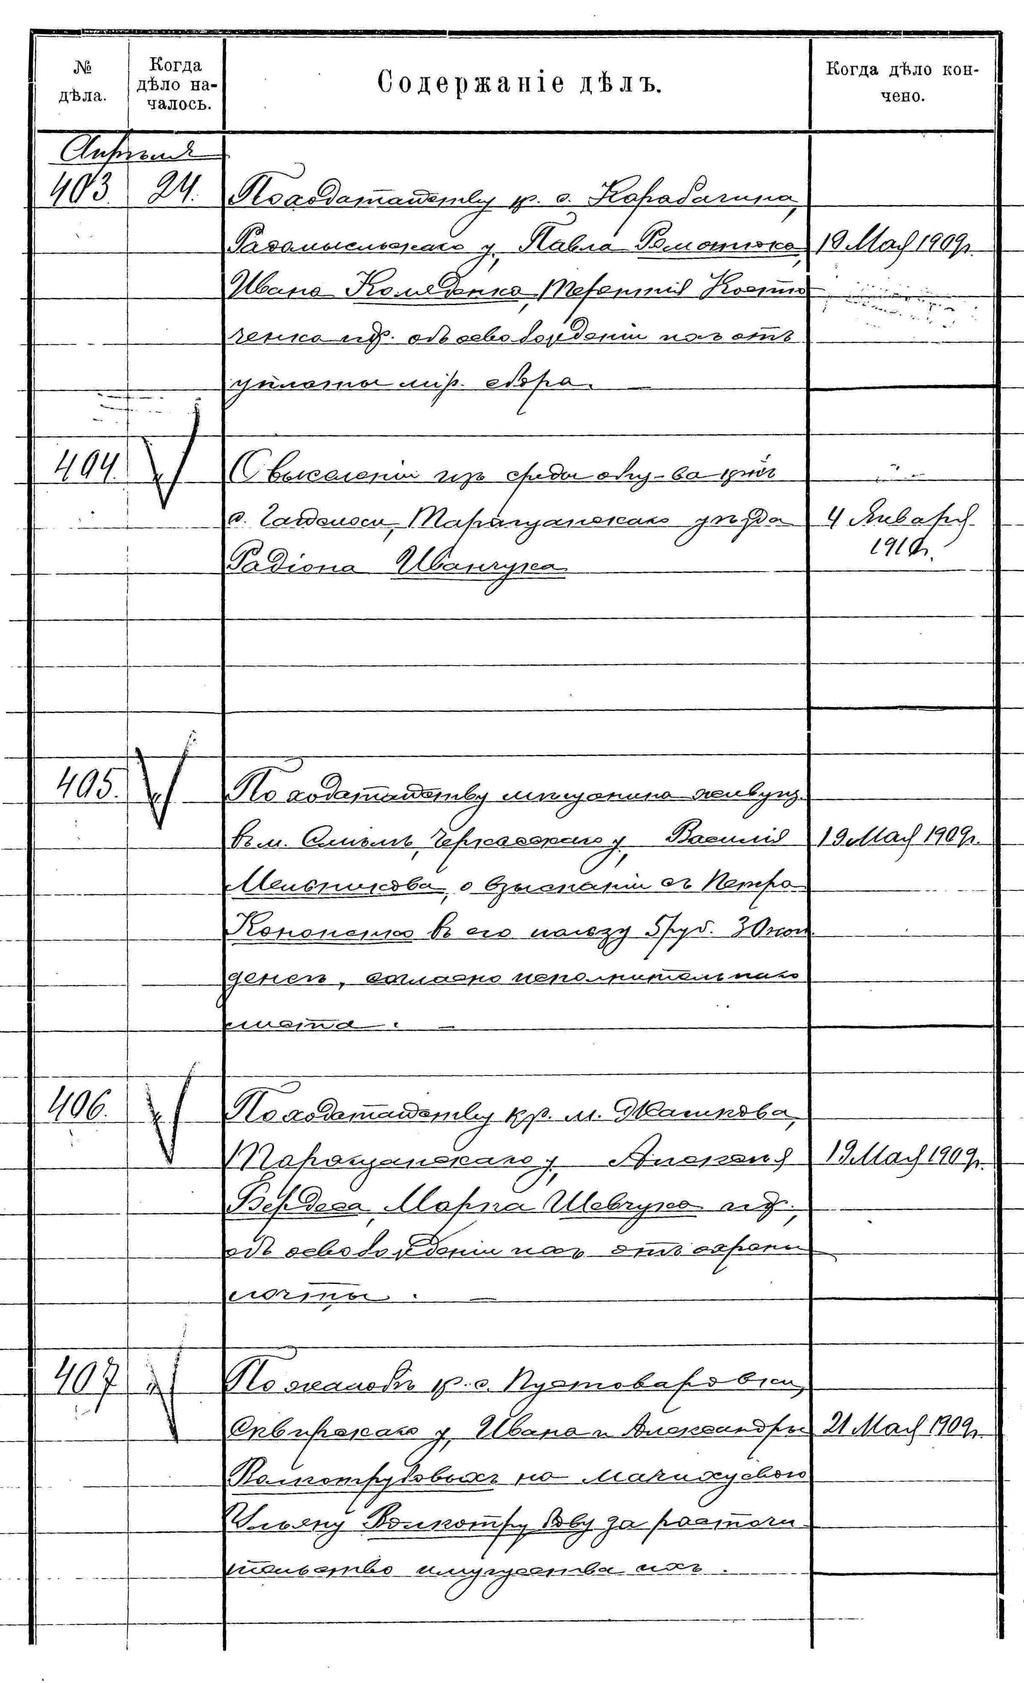 № дѣла.
Когда дѣло началось.
Содержаніе дѣлъ.
Когда дѣло кончено.
Апрѣля
403. 24. По ходатайству кр. с. Карабачина,
Радомысльскаго у., Павла Ремонтюка, 19 Мая 1909г.
Ивана Коляденка, Терентія Костю-
ченка и др. объ освобожденіи ихъ отъ
уплаты мір. сбора. —
404. „ О выселеніи изъ среды общ-ва кр-нъ
с. Гайсоси, Таращанскаго уѣзда 4 Января
Радіона Иванчука 1910г.
405. „ По ходатайству мѣщанина живущ.
въ м. Смѣлѣ, Черкасскаго у., Василія 19 Мая 1909г.
Мельникова, о взысканіи съ Петра
Кононенко въ его пользу 5 руб. 30 коп.
денегъ, согласно исполнительнаго
листа. —
406. „ По ходатайству кр. м. Жашкова,
Таращанскаго у., Алексѣя 19 Мая 1909г.
Бердеса, Марка Шевчука и др.,
объ освобожденіи ихъ отъ охраны
почты. —
407 „ По жалобѣ кр. с. Пустоваровки,
Сквирскаго у., Ивана и Александры 21 Мая 1909г.
Волкотрубовыхъ на мачиху свою
Ульяну Волкотрубову за расточи-
тельство имущества ихъ.